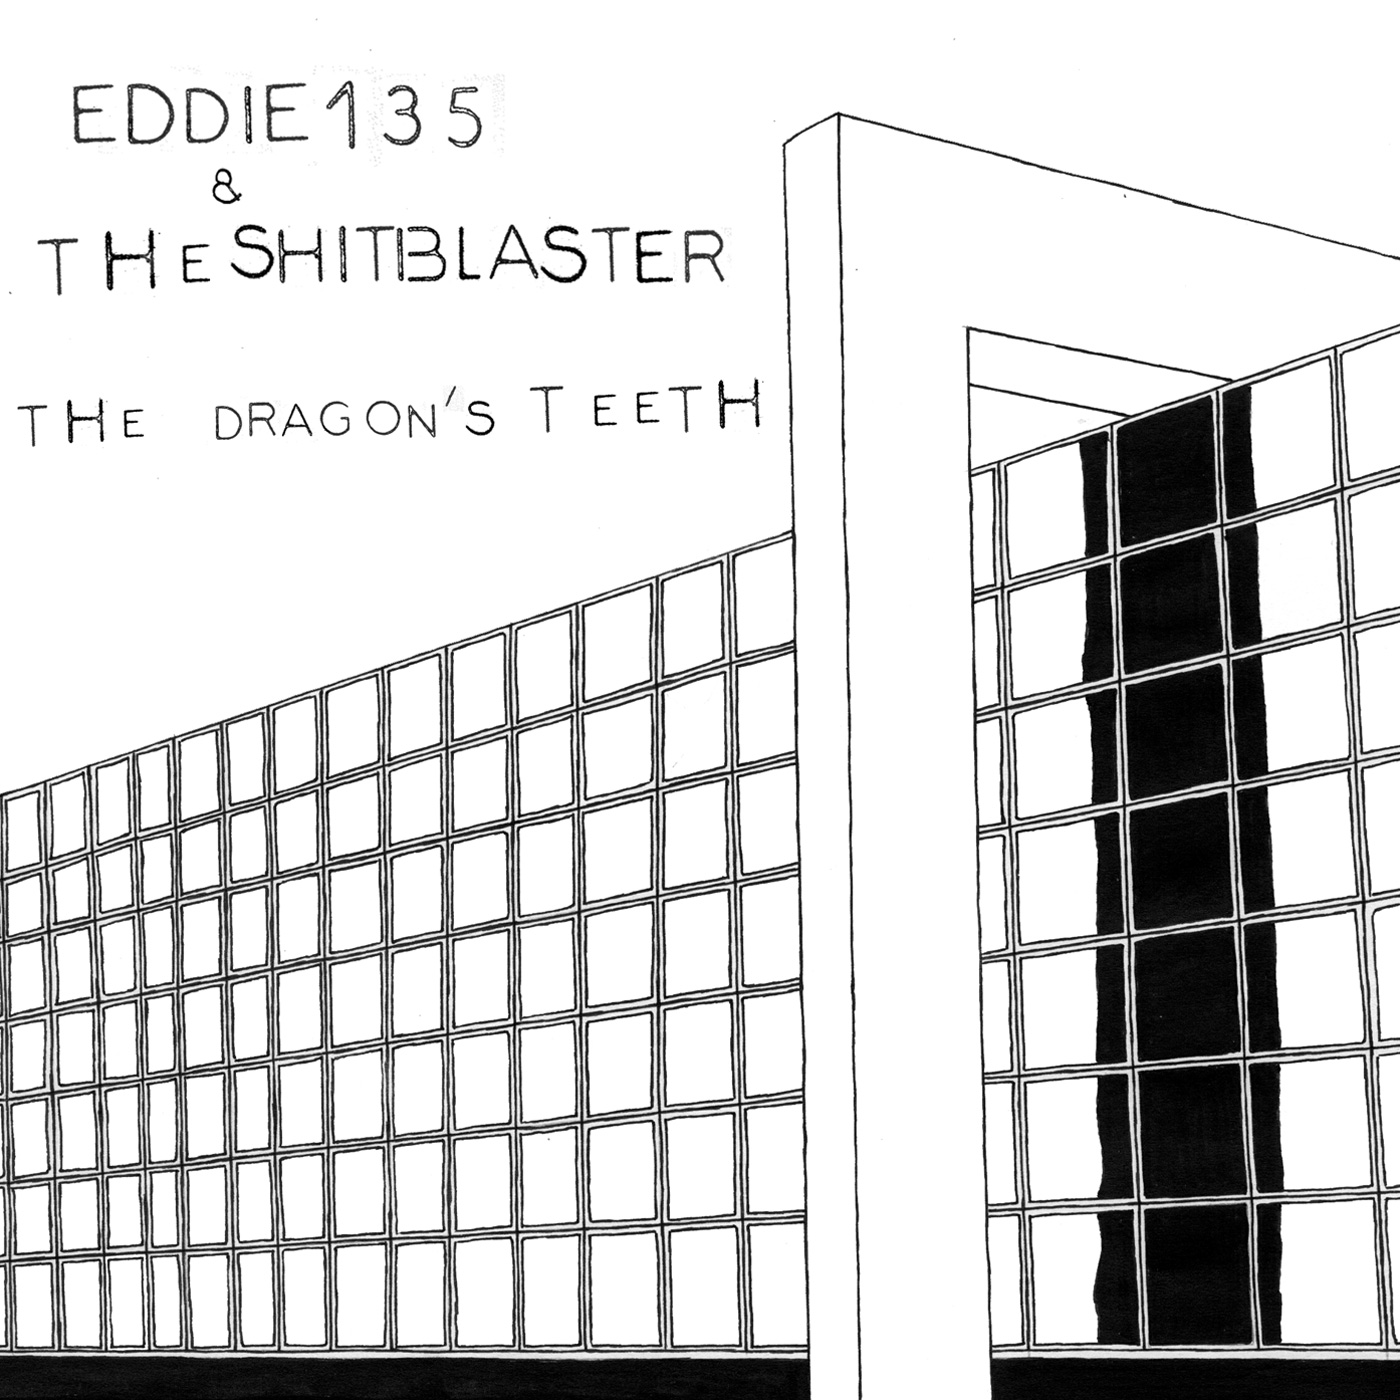 EDDIE135
&
THE SHITBLASTER
THE DRAGON'S TEETH